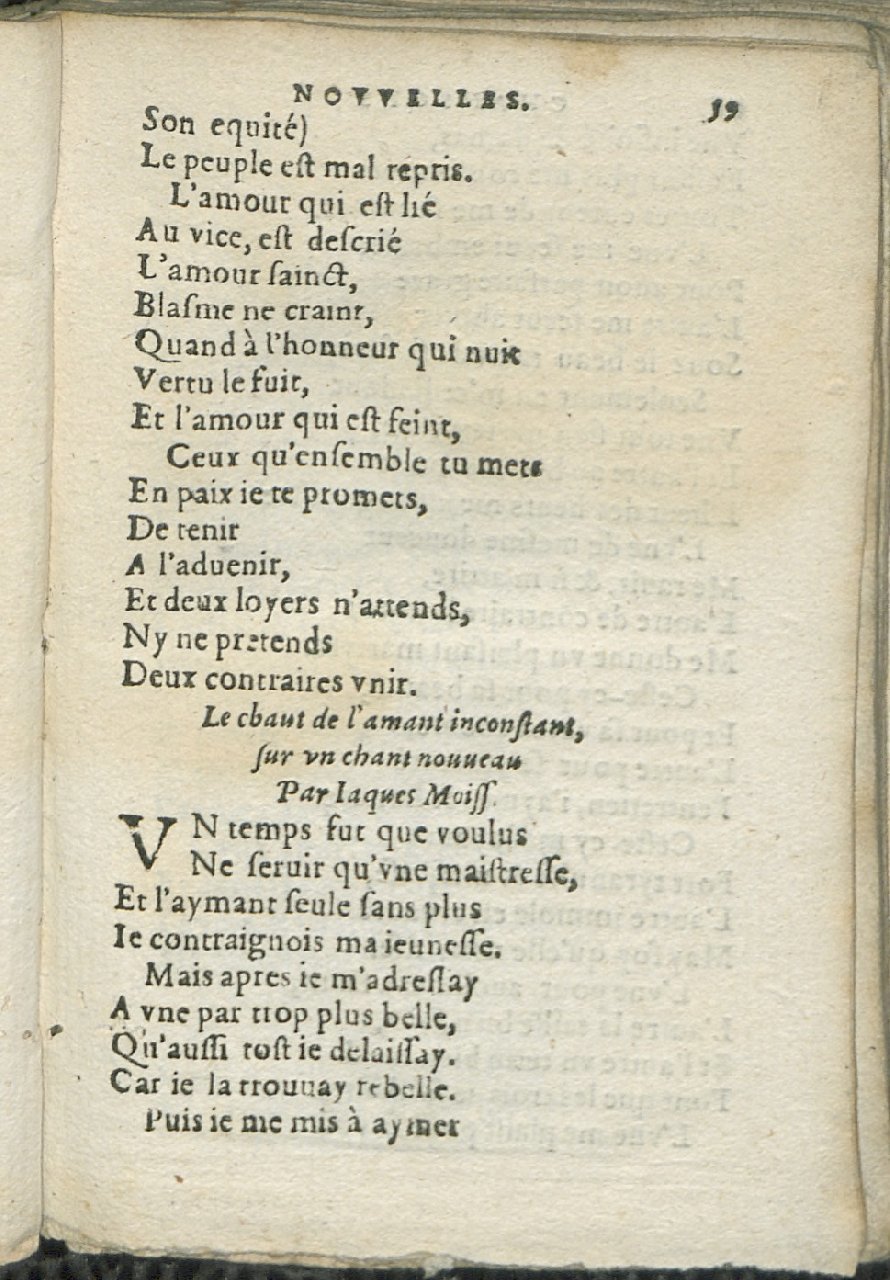 NOVVELLES. 39
Son equité)
Le peuple eſt mal repris.
L'amour qui eſt lié
Au vice, eſt deſcrié
L'amour ſainct,
Blaſme ne craint,
Quand à l'honneur qui nuit
Vertu le fuit,
Et l'amour qui eſt feint,
Ceux qu'enſemble tu mets
En paix ie te promets,
De tenir
A l'aduenir,
Et deux loyers n'attends,
Ny ne pretends
Deux contraires vnir.
Le chaut de l'amant inconſtant,
ſur vn chant nouueau
Par Iaques Moiſſ
VN temps fut que voulus
Ne ſeruir qu'vne maiſtreſſe,
Et l'aymant ſeule ſans plus
Ie contraignois ma ieuneſſe.
Mais apres ie m'adreſſay
A vne par trop plus belle,
Qu'auſſi toſt ie delaiſſay.
Car ie la trouuay rebelle.
Puis ie me mis à aymer